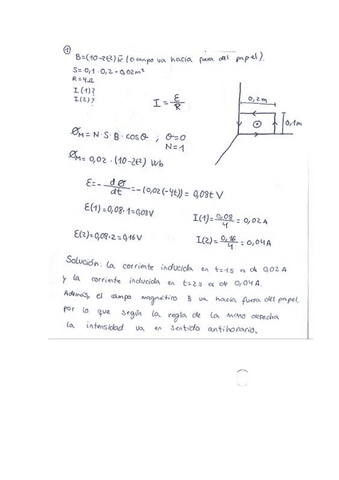 ①
B=(10-2t²) k⃗ (campo va hacia fuera del papel).
S=0,1·0,2=0,02m²
R=4Ω
I(1)?
I(2)?
I = ε/R
0,2m
0,1m
Ø_M = N·S·B·cosθ ; θ=0
N=1
Ø_M = 0,02·(10-2t²) Wb
ε=- dØ/dt =-(0,02(-4t))=0,08t V
ε(1)=0,08·1=0,08V
I(1)= 0,08/4 = 0,02A
ε(2)=0,08·2=0,16V
I(2)= 0,16/4 = 0,04A
Solución: La corriente inducida en t=1s es de 0,02A
y la corriente inducida en t=2s es de 0,04A.
Además, el campo magnético B va hacia fuera del papel,
por lo que según la regla de la mano derecha
la intensidad va en sentido antihorario.